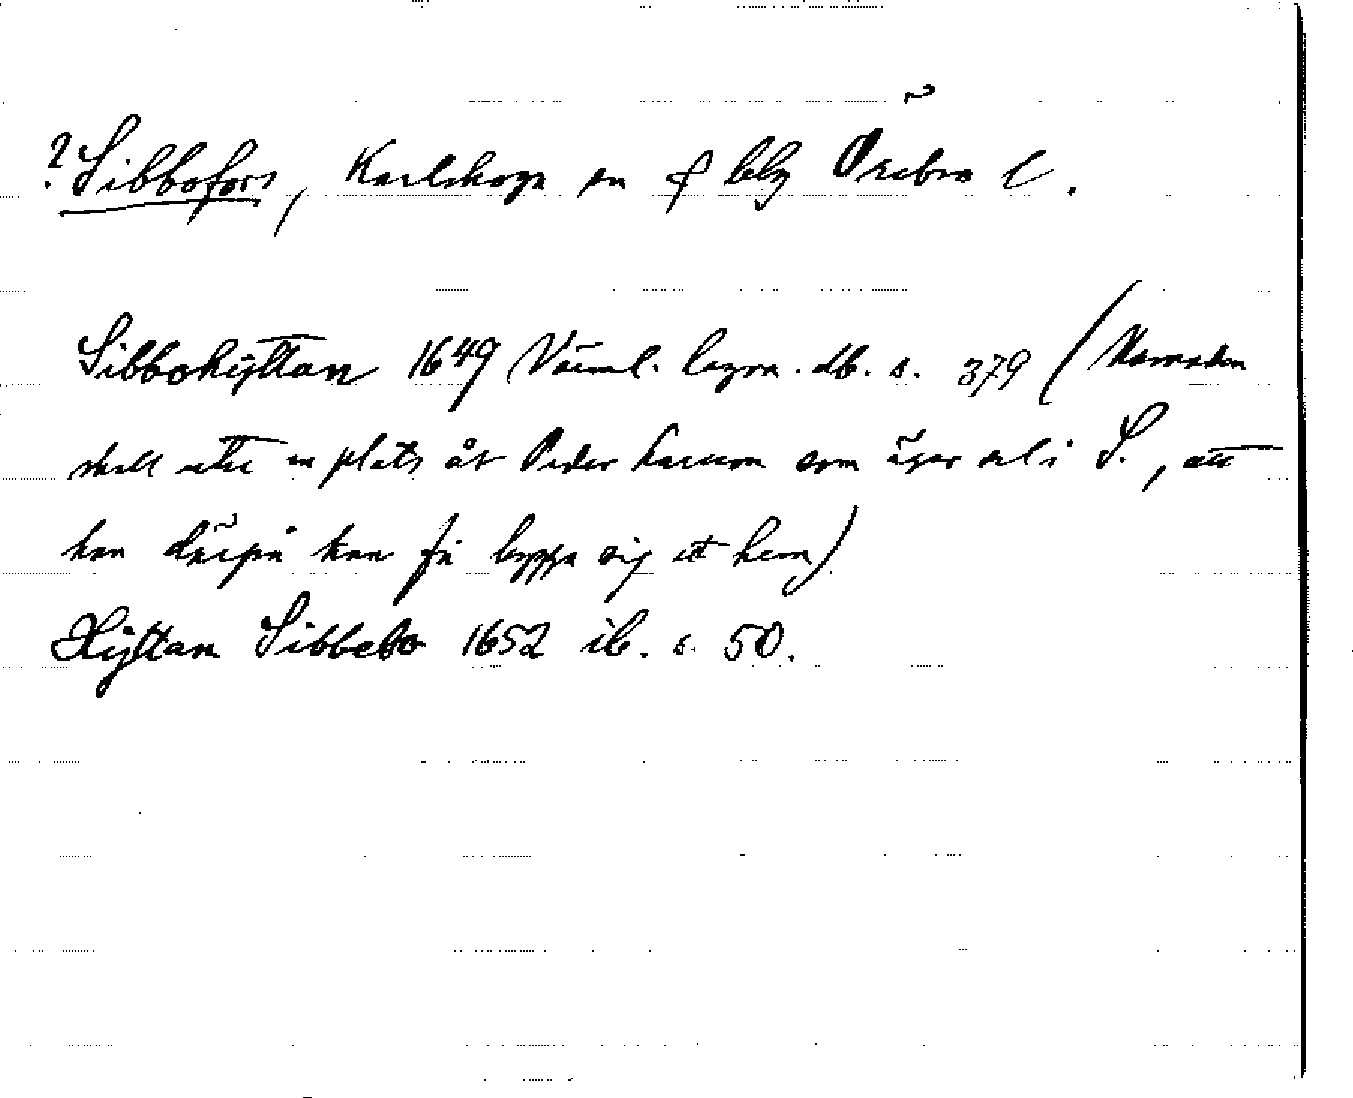 ? Sibbofors, Karlskoga sn f bbg Örebro l.
Sibbohÿttan 1649 Värml. lagm. db. s. 379 (Nämnden
skall utse en plats åt Peder Larsson som äger del i S., att
han därpå kan få bygga sig ett hem)
Hÿttan Sibbebo 1652 ib. s. 50.